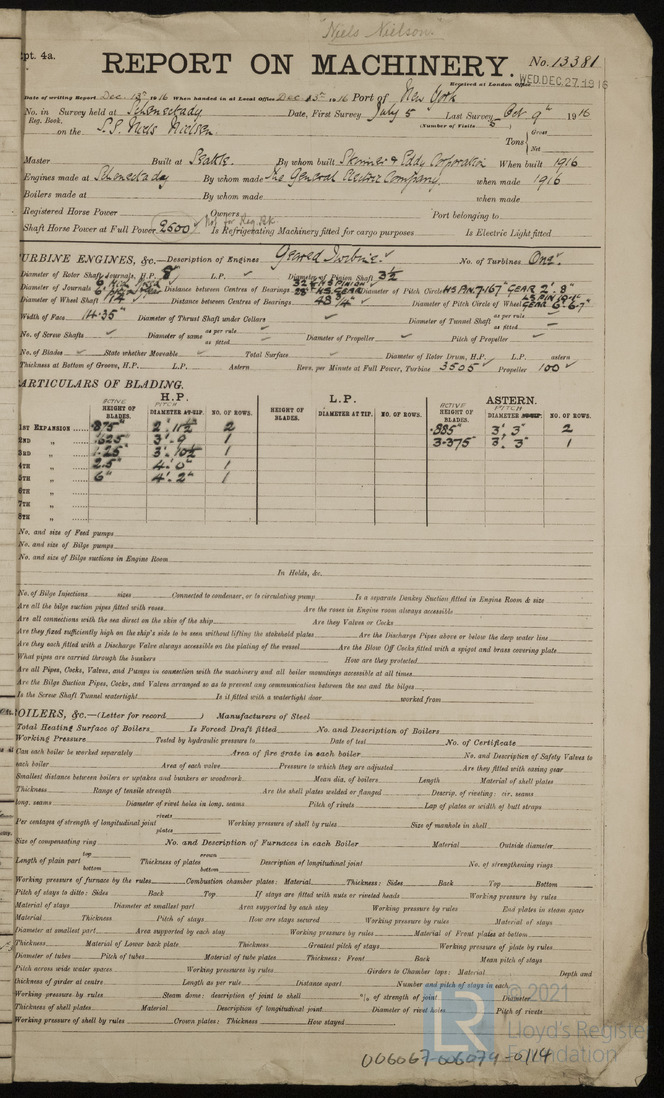 Niels Nielson
Rpt. 4a.
REPORT ON MACHINERY. No. 13381
Received at London Office WED. DEC. 27. 1916
Date of writing Report Dec. 13th 1916 When handed in at Local Office Dec 15th 1916 Port of New York
No. in Survey held at Schenectady Date, First Survey July 5 Last Survey Oct. 9th 1916
Reg. Book. (Number of Visits 5)
on the S.S. Niels Nielsen. Tons { Gross
Net
Master Built at Seattle. By whom built Skinner & Eddy Corporation When built 1916
Engines made at Schenectady By whom made The General Electric Company. when made 1916
Boilers made at By whom made when made
Registered Horse Power Owners Port belonging to
Shaft Horse Power at Full Power 2500 Not for Reg. Bk. Is Refrigerating Machinery fitted for cargo purposes Is Electric Light fitted
TURBINE ENGINES, &c.—Description of Engines Geared Turbine. No. of Turbines One.
Diameter of Rotor Shaft Journals, H.P. 8" L.P. Diameter of Pinion Shaft 3½
Diameter of Journals Distance between Centres of Bearings Diameter of Pitch Circle H.S. PIN. 7.167" GEAR 2'. 8"
Diameter of Wheel Shaft Distance between Centres of Bearings 43 ¾" Diameter of Pitch Circle of Wheel
Width of Face 14.35" Diameter of Thrust Shaft under Collars Diameter of Tunnel Shaft as per rule
as fitted
No. of Screw Shafts Diameter of same as per rule Diameter of Propeller Pitch of Propeller
as fitted
No. of Blades State whether Moveable Total Surface Diameter of Rotor Drum, H.P. L.P. astern
Thickness at Bottom of Groove, H.P. L.P. Astern Revs. per Minute at Full Power, Turbine 3505 Propeller 100
PARTICULARS OF BLADING.
H.P. L.P. ASTERN.
ACTIVE HEIGHT OF BLADES. PITCH DIAMETER AT TIP. NO. OF ROWS. HEIGHT OF BLADES. DIAMETER AT TIP. NO. OF ROWS. ACTIVE HEIGHT OF BLADES. PITCH DIAMETER AT TIP. NO. OF ROWS.
1ST EXPANSION .875" 2'. 11½" 2 .885" 3'. 3" 2
2ND " .625" 3'- 9 1 3.375 3'. 3" 1
3RD " 1.25" 3'. 10½ 1
4TH " 2.5" 4'. 0" 1
5TH " 6" 4'. 2" 1
6TH "
7TH "
8TH "
No. and size of Feed pumps
No. and size of Bilge pumps
No. and size of Bilge suctions in Engine Room
In Holds, &c.
No. of Bilge Injections sizes Connected to condenser, or to circulating pump Is a separate Donkey Suction fitted in Engine Room & size
Are all the bilge suction pipes fitted with roses Are the roses in Engine room always accessible
Are all connections with the sea direct on the skin of the ship Are they Valves or Cocks
Are they fixed sufficiently high on the ship's side to be seen without lifting the stokehold plates Are the Discharge Pipes above or below the deep water line
Are they each fitted with a Discharge Valve always accessible on the plating of the vessel Are the Blow Off Cocks fitted with a spigot and brass covering plate
What pipes are carried through the bunkers How are they protected
Are all Pipes, Cocks, Valves, and Pumps in connection with the machinery and all boiler mountings accessible at all times
Are the Bilge Suction Pipes, Cocks, and Valves arranged so as to prevent any communication between the sea and the bilges
Is the Screw Shaft Tunnel watertight Is it fitted with a watertight door worked from
BOILERS, &c.—(Letter for record ) Manufacturers of Steel
Total Heating Surface of Boilers Is Forced Draft fitted No. and Description of Boilers
Working Pressure Tested by hydraulic pressure to Date of test No. of Certificate
Can each boiler be worked separately Area of fire grate in each boiler No. and Description of Safety Valves to
each boiler Area of each valve Pressure to which they are adjusted Are they fitted with easing gear
Smallest distance between boilers or uptakes and bunkers or woodwork Mean dia. of boilers Length Material of shell plates
Thickness Range of tensile strength Are the shell plates welded or flanged Descrip. of riveting: cir. seams
long. seams Diameter of rivet holes in long. seams Pitch of rivets Lap of plates or width of butt straps
Per centages of strength of longitudinal joint rivets Working pressure of shell by rules Size of manhole in shell
plates
Size of compensating ring No. and Description of Furnaces in each Boiler Material Outside diameter
Length of plain part top Thickness of plates crown Description of longitudinal joint No. of strengthening rings
bottom bottom
Working pressure of furnace by the rules Combustion chamber plates: Material Thickness: Sides Back Top Bottom
Pitch of stays to ditto: Sides Back Top If stays are fitted with nuts or riveted heads Working pressure by rules
Material of stays Diameter at smallest part Area supported by each stay Working pressure by rules End plates in steam space
Material Thickness Pitch of stays How are stays secured Working pressure by rules Material of stays
Diameter at smallest part Area supported by each stay Working pressure by rules Material of Front plates at bottom
Thickness Material of Lower back plate Thickness Greatest pitch of stays Working pressure of plate by rules
Diameter of tubes Pitch of tubes Material of tube plates Thickness: Front Back Mean pitch of stays
Pitch across wide water spaces Working pressures by rules Girders to Chamber tops: Material Depth and
thickness of girder at centre Length as per rule Distance apart Number and pitch of stays in each
Working pressure by rules Steam dome: description of joint to shell % of strength of joint Diameter
Thickness of shell plates Material Description of longitudinal joint Diameter of rivet holes Pitch of rivets
Working pressure of shell by rules Crown plates: Thickness How stayed
LR © 2021
Lloyd's Register
Foundation
006067-006079-0114